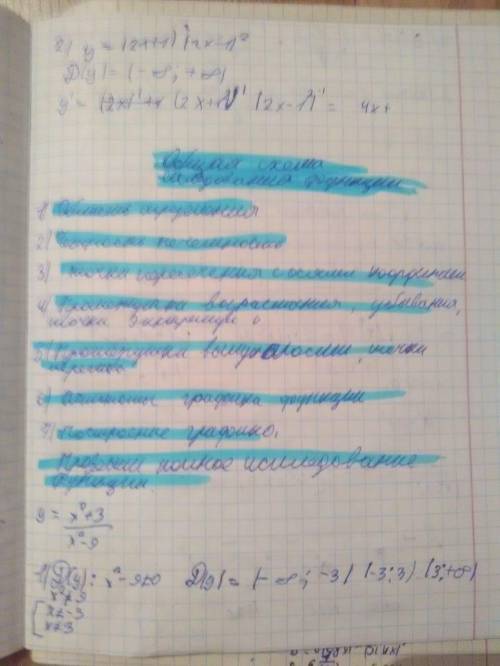 2) y = (2x+1)² (2x-1)²
D(y) = (-∞; +∞)
y' = (2x)'+x (2x+1)' (2x-1)' = 4x+
Общая схема
исследования функции
1) Область определения
2) четность нечетность
3) точка пересечения с осями координат
4) Промежутки возрастания, убывания,
точки экстремума
5) Промежутки выпуклости, точки
перегиба
6) Асимптоты графика функции
7) Построение графика.
Провести полное исследование
функции.
y = x²+3
x²-9
1) D(y): x²-9≠0 D(y) = (-∞; -3) (-3; 3) (3; +∞)
x²≠9
x≠-3
x≠3